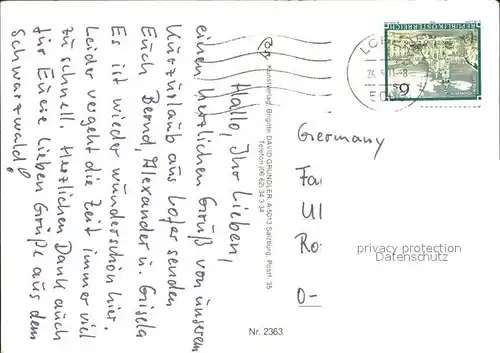 Hallo, Ihr Lieben,
einen herzlichen Gruß von unserem
Kurzurlaub aus Lofer senden
Euch Bernd, Alexander u. Gisela
Es ist wieder wunderschön hier.
Leider vergeht die Zeit immer viel
zu schnell. Herzlichen Dank auch
für Eure lieben Grüße aus dem
Schwarzwald!
Kunstverlag Brigitte DAVID-GRUNDLER, A-5013 Salzburg, Postf. 35
Telefon (06 62) 34 3 34
Nr. 2363
REPUBLIK ÖSTERREICH
S6
LOFER
Germany
Fa
Ul
Ro
D-
privacy protection
Datenschutz